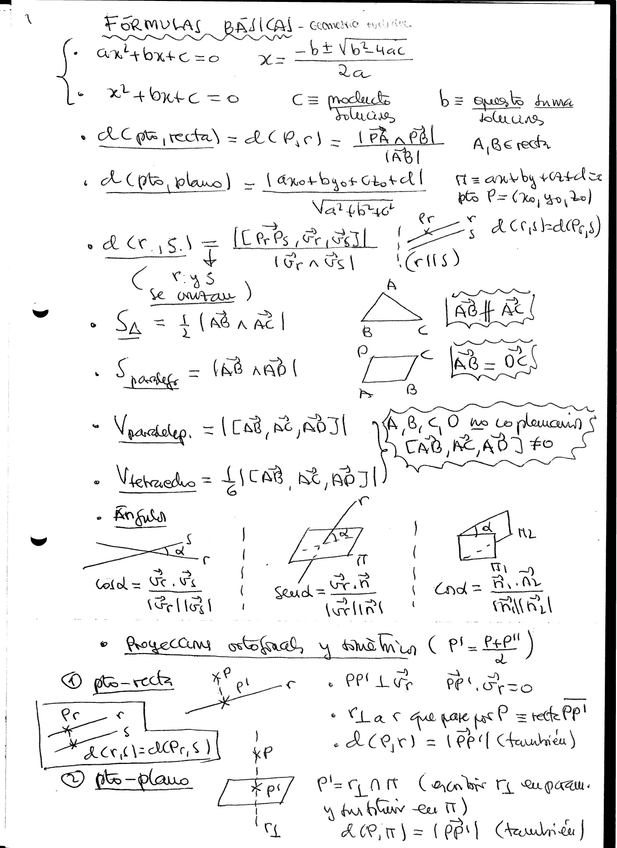 FÓRMULAS BÁSICAS - Geometría
• ax²+bx+c=0   x = (-b ± √(b²-4ac)) / 2a
• x²+bx+c=0   c ≡ producto soluciones   b ≡ opuesto suma soluciones
• d(pto, recta) = d(P,r) = |PA⃗ ∧ PB⃗| / |AB⃗|   A,B∈recta
• d(pto, plano) = |ax₀+by₀+cz₀+d| / √(a²+b²+c²)   π ≡ ax+by+cz+d=0
pto P=(x₀,y₀,z₀)
• d(r,s) = |[PrPs⃗, v⃗r, v⃗s]| / |v⃗r ∧ v⃗s|   Pr r s (r∥s)   d(r,s)=d(Pr,s)
(r y s se cruzan)
• S△ = 1/2 |AB⃗ ∧ AC⃗|   A B C   AB⃗ ∦ AC⃗
• Sparalelgr = |AB⃗ ∧ AD⃗|   D C A B   AB⃗ = DC⃗
• Vparalelep. = |[AB⃗, AC⃗, AD⃗]|   A,B,C,D no coplanarios
[AB⃗, AC⃗, AD⃗] ≠ 0
• Vtetraedro = 1/6 |[AB⃗, AC⃗, AD⃗]|
• Ángulos
s α r   r α π   α π1 π2
cosα = v⃗r·v⃗s / |v⃗r||v⃗s|   senα = v⃗r·n⃗ / |v⃗r||n⃗|   cosα = n⃗1·n⃗2 / |n⃗1||n⃗2|
• Proyecciones ortogonales y simétricos (P' = (P+P'')/2)
① pto-recta   P P' r   • PP' ⊥ v⃗r   PP'⃗·v⃗r=0
Pr r s   • r⊥ a r que pase por P ≡ recta PP'
d(r,s)=d(Pr,s)   • d(P,r) = |PP'⃗| (también)
② pto-plano   P P' r⊥   P' = r⊥ ∩ π (escribir r⊥ en param.
y sustituir en π)
d(P,π) = |PP'⃗| (también)